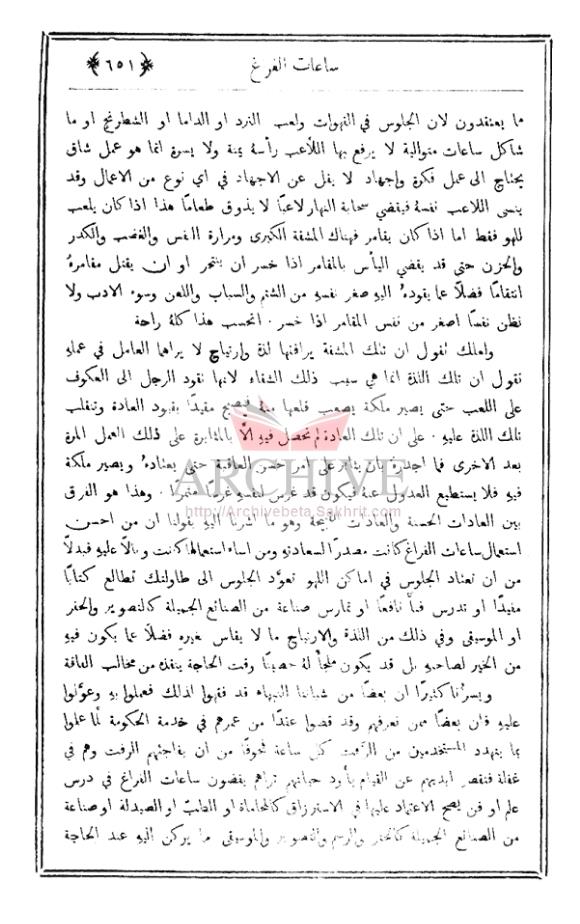 ساعات الفراغ ﴿٦٥١﴾
مما يعتقدون لان الجلوس في القهوات ولعب النرد او الداما او الشطرنج او ما
شاكل ساعات متوالية لا يرفع بها اللاعب رأسهُ يمنة ولا يسرة انما هو عمل شاق
يحتاج الى عمل فكرة واجهاد لا يقل عن الاجهاد في اي نوع من الاعمال وقد
ينسى اللاعب نفسهُ فيقضي سحابة النهار لاعبًا لا يذوق طعامًا هذا اذا كان يلعب
للهو فقط اما اذا كان يقامر فهناك المشقة الكبرى ومرارة النفس والغضب والكدر
والحزن حتى قد يقضي اليأس بالمقامر اذا خسر ان ينتحر او ان يقتل مقامرهُ
انتقامًا فضلًا عما يقودهُ اليهِ صغر نفسهِ من الشتم والسباب واللعن وسوء الادب ولا
نظن نفسًا اصغر من نفس المقامر اذا خسر . انحسب هذا كلهُ راحة
ولعلك تقول ان تلك المشقة يرافقها لذة وارتياح لا يراهما العامل في عملهِ
نقول ان تلك اللذة انما هي سبب ذلك الشقاء لانها تقود الرجل الى العكوف
على اللعب حتى يصير ملكة يصعب قلعها منهُ فيصبح مقيدًا بقيود العادة وتنقلب
تلك اللذة عليهِ . على ان تلك العادة لم تحصل فيهِ الَّا بالمثابرة على ذلك العمل المرة
بعد الاخرى فما اجدرهُ بان يثابر على امر حسن العاقبة حتى يعتادهُ ويصير ملكة
فيهِ فلا يستطيع العدول عنهُ فيكون قد غرس لنفسهِ غرسًا مثمرًا . وهذا هو الفرق
بين العادات الحسنة والعادات القبيحة وهو ما اشرنا اليهِ بقولنا ان من احسن
استعمال ساعات الفراغ كانت مصدرًا لسعادتهِ ومن اساء استعمالها كانت وبالًا عليهِ فبدلًا
من ان تعتاد الجلوس في اماكن اللهو تعوَّد الجلوس الى طاولتك تطالع كتابًا
مفيدًا او تدرس فنًا نافعًا او تمارس صناعة من الصنائع الجميلة كالتصوير والحفر
او الموسيقى وفي ذلك من اللذة والارتياح ما لا يقاس بغيرهِ فضلًا عما يكون فيهِ
من الخير لصاحبهِ بل قد يكون ملجأً لهُ حصينًا وقت الحاجة ينقذهُ من مخالب الفاقة
ويسرُّنا كثيرًا ان بعضًا من شباننا النبهاء قد فقهوا لذلك فعملوا بهِ وعوَّلوا
عليهِ فان بعضًا ممن نعرفهم وقد قضوا عقدًا من عمرهم في خدمة الحكومة لمَّا علموا
بما يتهدد المستخدمين من الرَّفت كل ساعة خوفًا من ان يفاجئهم الرفت وهم في
غفلة فتقصر ايديهم عن القيام بأود حياتهم تراهم يقضون ساعات الفراغ في درس
علم او فن يصح الاعتماد عليها في الاسترزاق كالمحاماة او الطب او الصيدلة او صناعة
من الصنائع الجميلة كالحفر والرسم والتصوير والموسيقى ما يركن اليهِ عند الحاجة
ARCHIVE
http://Archivebeta.Sakhrit.com